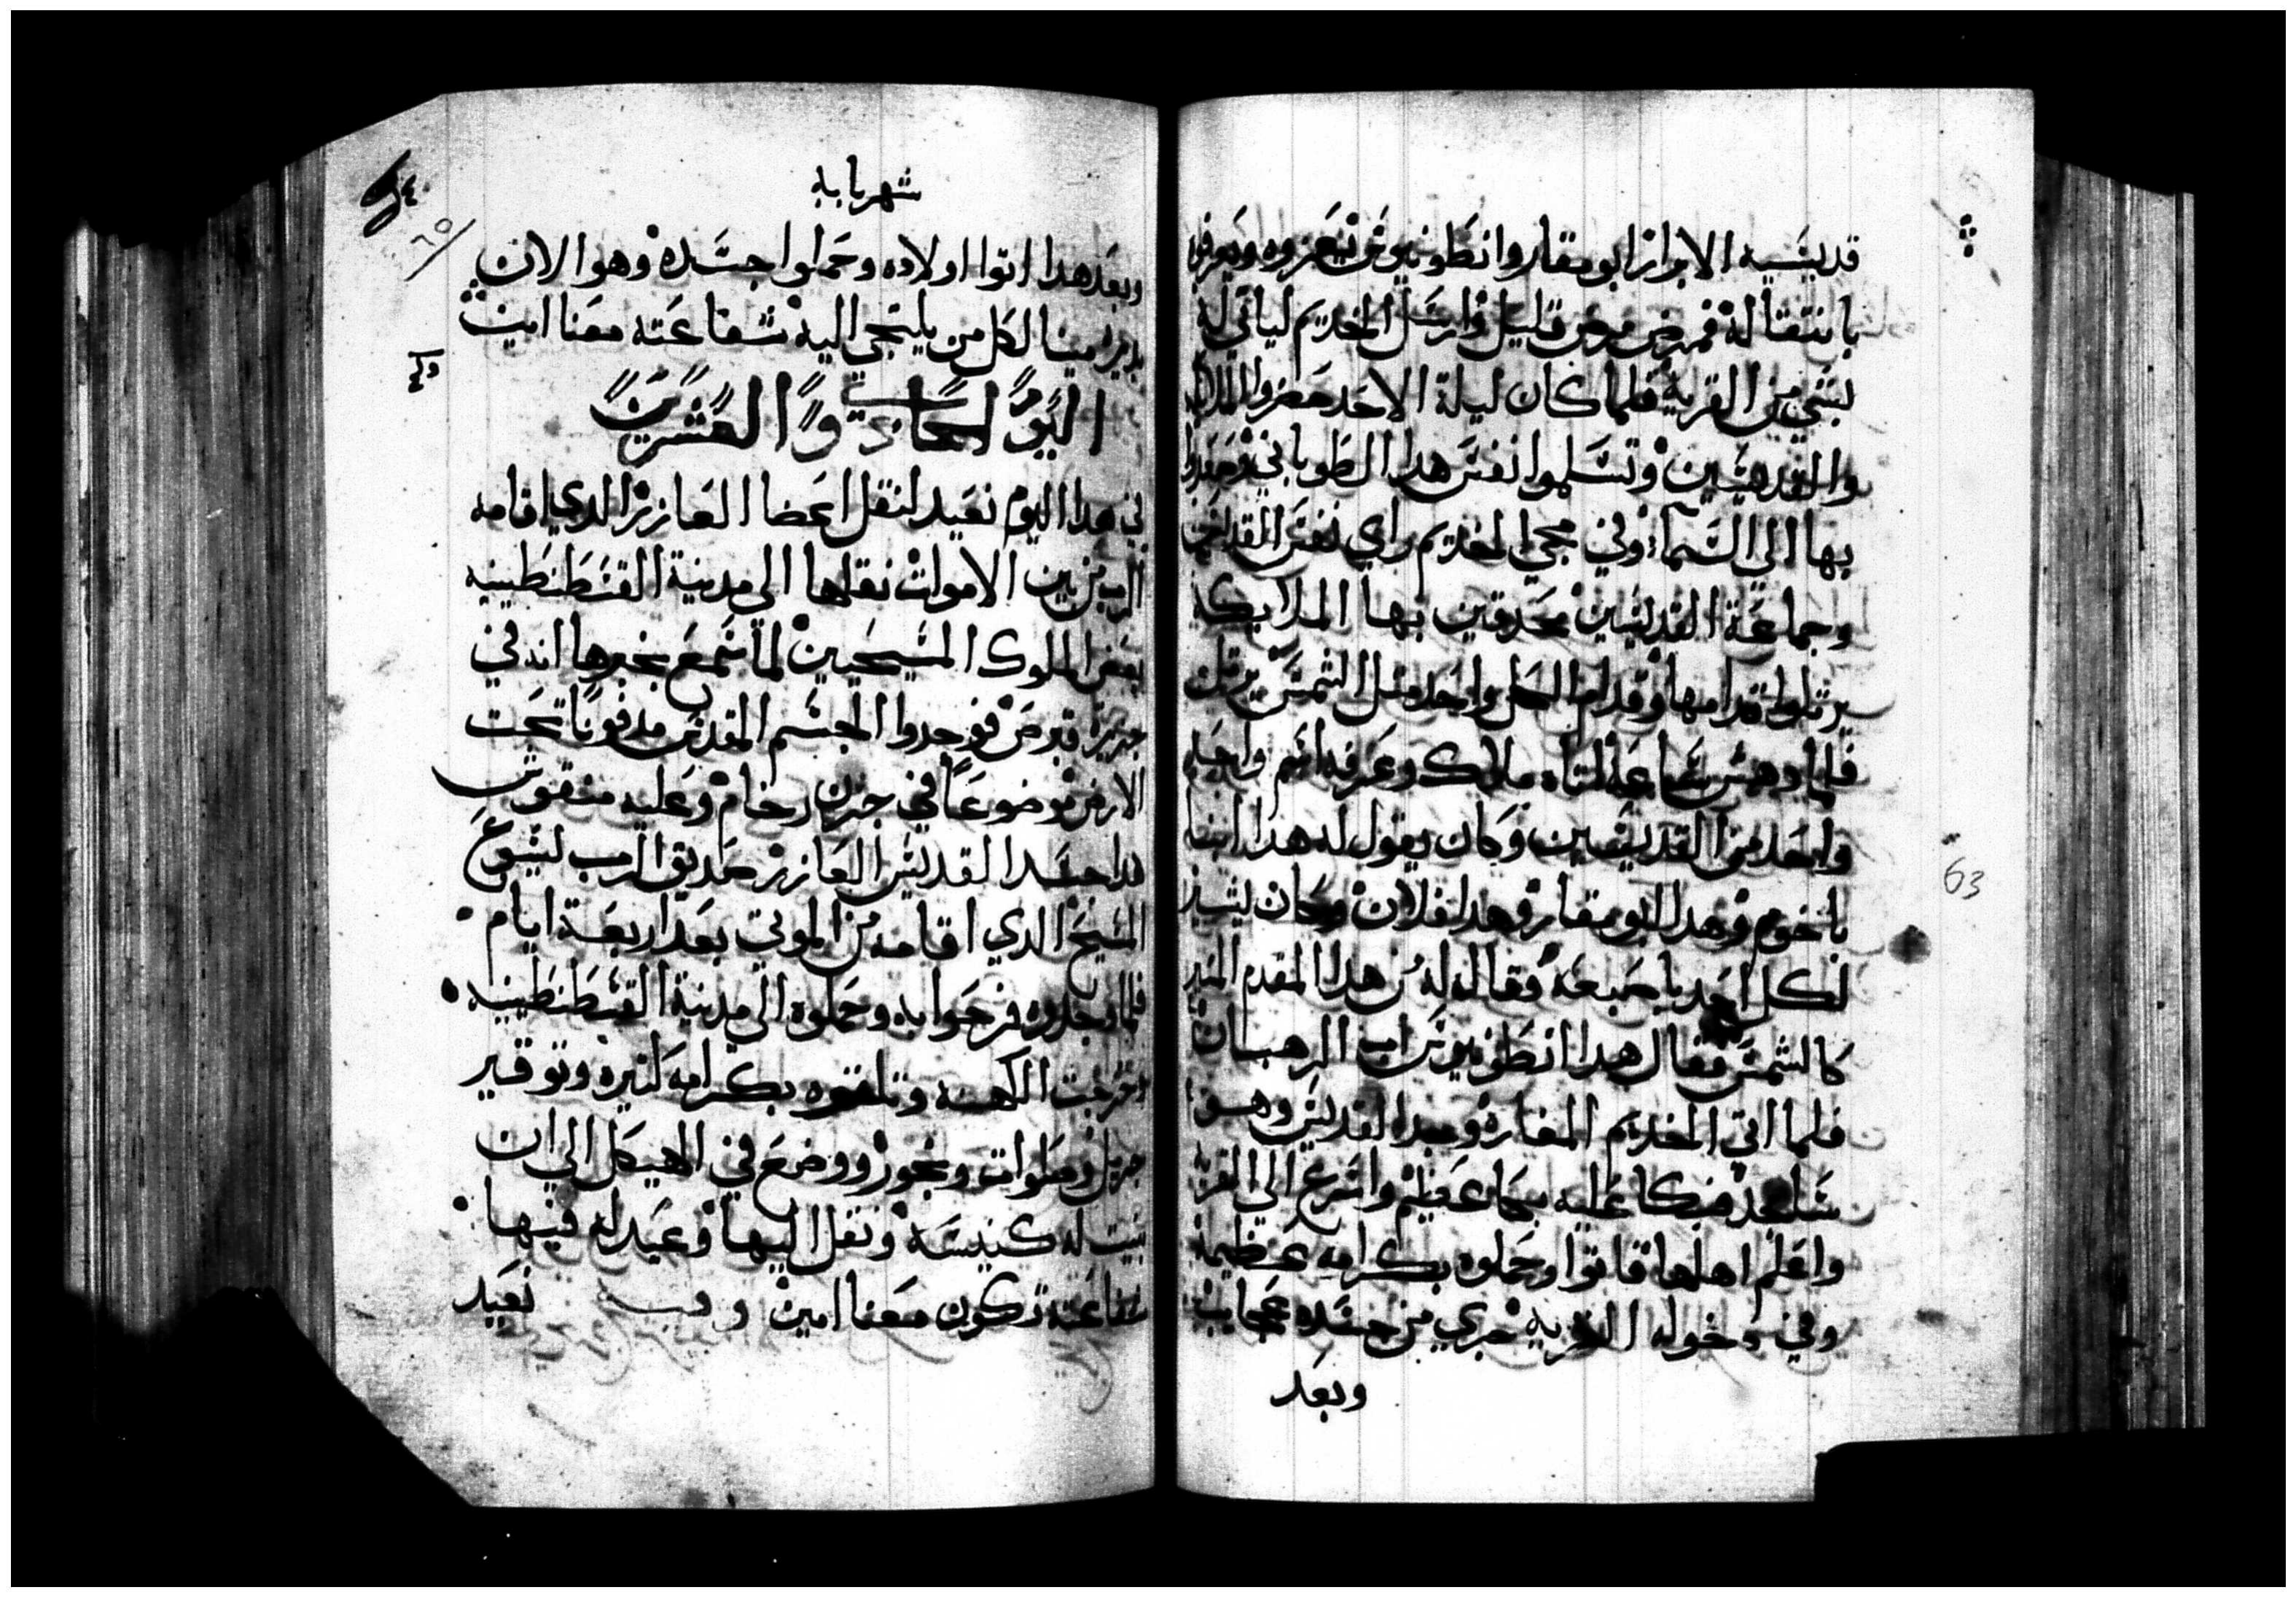 قديسيه الابرار ابو مقار وانطونيوس يعزوه ويعرفوه
بانتقاله فمرض مرض قليل وارسل الخديم لياتي له
بشي من القريه فلما كان ليلة الاحد حضروا الملايكه
والقديسين وتسلموا نفس هدا الطوباني وصعدوا
بها الي السما وفي مجي الخديم راي نفس القديس
وجماعة القديسين محدقين بها الملايكه
يرتلوا قدامها وقدام الكل واحد مثل الشمس يرتل
فلما دهش ساعه اتاه ملاك وعرفه اسم واحد
واحد من القديسين وكان يقول له هدا انبا
باخوم وهدا ابو مقار وهدا فلان وكان يشير
لكل احد باصبعه فقال له من هدا المقدم المنير
كالشمس فقال هدا انطونيوس اب الرهبان
فلما اتي الخديم المغاره وجد القديس وهو
ساجد فبكا عليه بكا عظيم واسرع الي القريه
واعلم اهلها فاتوا وحملوه بكرامه عظيمة
وفي دخوله القريه جري من جسده عجايب
وبعد
63
شهر بابه
وبعد هدا اتوا اولاده وحملوا جسده وهو الان
بدير امينا لكل من يلتجي اليه شفاعته معنا امين
اليوم الحادي والعشرين
في هدا اليوم نعيد لنقل اعضا العازر الدي اقامه
الرب من بين الاموات نقلها الي مدينة القسطنطينيه
بعض الملوك المسيحيين لما سمع بخبرها انه في
جزيرة قبرص فوجدوا الجسم المقدس مدفونا تحت
الارض موضوعا في جرن رخام وعليه منقوش
هدا جسد القديس العازر صديق الرب يسوع
المسيح الدي اقامه من الموتي بعد اربعة ايام
فلما وجدوه فرحوا به وحملوه الي مدينة القسطنطينيه
وخرجت الكهنه وتلقوه بكرامه كتيره وتوقير
جزيل وصلوات وبخور ووضع في الهيكل الي ان
بنيت له كنيسه ونقل اليها وعيد له فيها
شفاعته تكون معنا امين وفيه نعيد